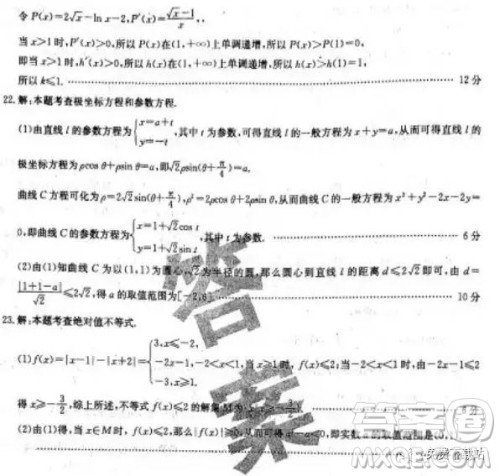 令 P(x)=2√x-ln x-2,P′(x)=(√x-1)/x,.
当 x>1 时,P′(x)>0,所以 P(x)在(1,+∞)上单调递增,所以 P(x)>P(1)=0,
即当 x>1 时,h′(x)>0,所以 h(x)在(1,+∞)上单调递增,所以 h(x)>h(1)=1,
所以 k≤1. 12 分
22.解:本题考查极坐标方程和参数方程.
(1)由直线 l 的参数方程为{x=a+t y=-t ,其中 t 为参数,可得直线 l 的一般方程为 x+y=a,从而可得直线 l 的
极坐标方程为 ρcos θ+ρsin θ=a,即√2ρsin(θ+π/4)=a.
曲线 C 方程可化为 ρ=2√2sin(θ+π/4),ρ²=2ρcos θ+2ρsin θ,从而曲线 C 的一般方程为 x²+y²-2x-2y=
0,即曲线 C 的参数方程为{x=1+√2cos t y=1+√2sin t ,其中 t 为参数. 6 分
(2)由(1)知曲线 C 为以(1,1)为圆心,√2为半径的圆,那么圆心到直线 l 的距离 d≤2√2即可,由 d=
|1+1-a|/√2≤2√2,得 a 的取值范围为[-2,6]. 10 分
23.解:本题考查绝对值不等式.
(1)f(x)=|x-1|-|x+2|={3,x≤-2, -2x-1,-2<x<1, -3,x≥1. 当 x≥1 时,f(x)≤2;当-2<x<1 时,由-2x-1≤2
得 x≥-3/2,综上所述,不等式 f(x)≤2 的解集 M 为
(2)由(1)得,当 x∈M 时,f(x)≤2,那么|f(x)|≤3,从而可得 a²-a≤0,即实数 a 的取值范围是[0,1].
答案